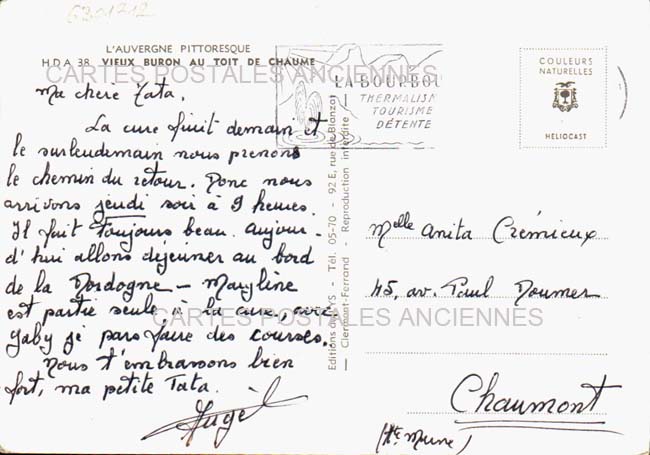 6301212
L'AUVERGNE PITTORESQUE
H D A 38 VIEUX BURON AU TOIT DE CHAUME
CARTES POSTALES ANCIENNES
Ma chère Tata,
La cure finit demain et
le surlendemain nous prenons
le chemin du retour. Donc nous
arrivons jeudi soir à 9 heures.
Il fait toujours beau. Aujour-
d'hui allons déjeuner au bord
de la Dordogne - Maryline
est partie seule à la cure, avec
Gaby je pars faire des courses.
Nous t'embrassons bien
fort, ma petite Tata.
CARTES POSTALES ANCIENNES
Editions du LYS - Tél. 05-70 - 92 E, rue de Blanzat
— Clermont-Ferrand - Reproduction interdite —
LA BOURBOU
THERMALISM
TOURISME
DÉTENTE
COULEURS
NATURELLES
HELIOCAST
Melle Anita Crémieux
45, av. Paul Doumer
Chaumont
(Hte Marne)